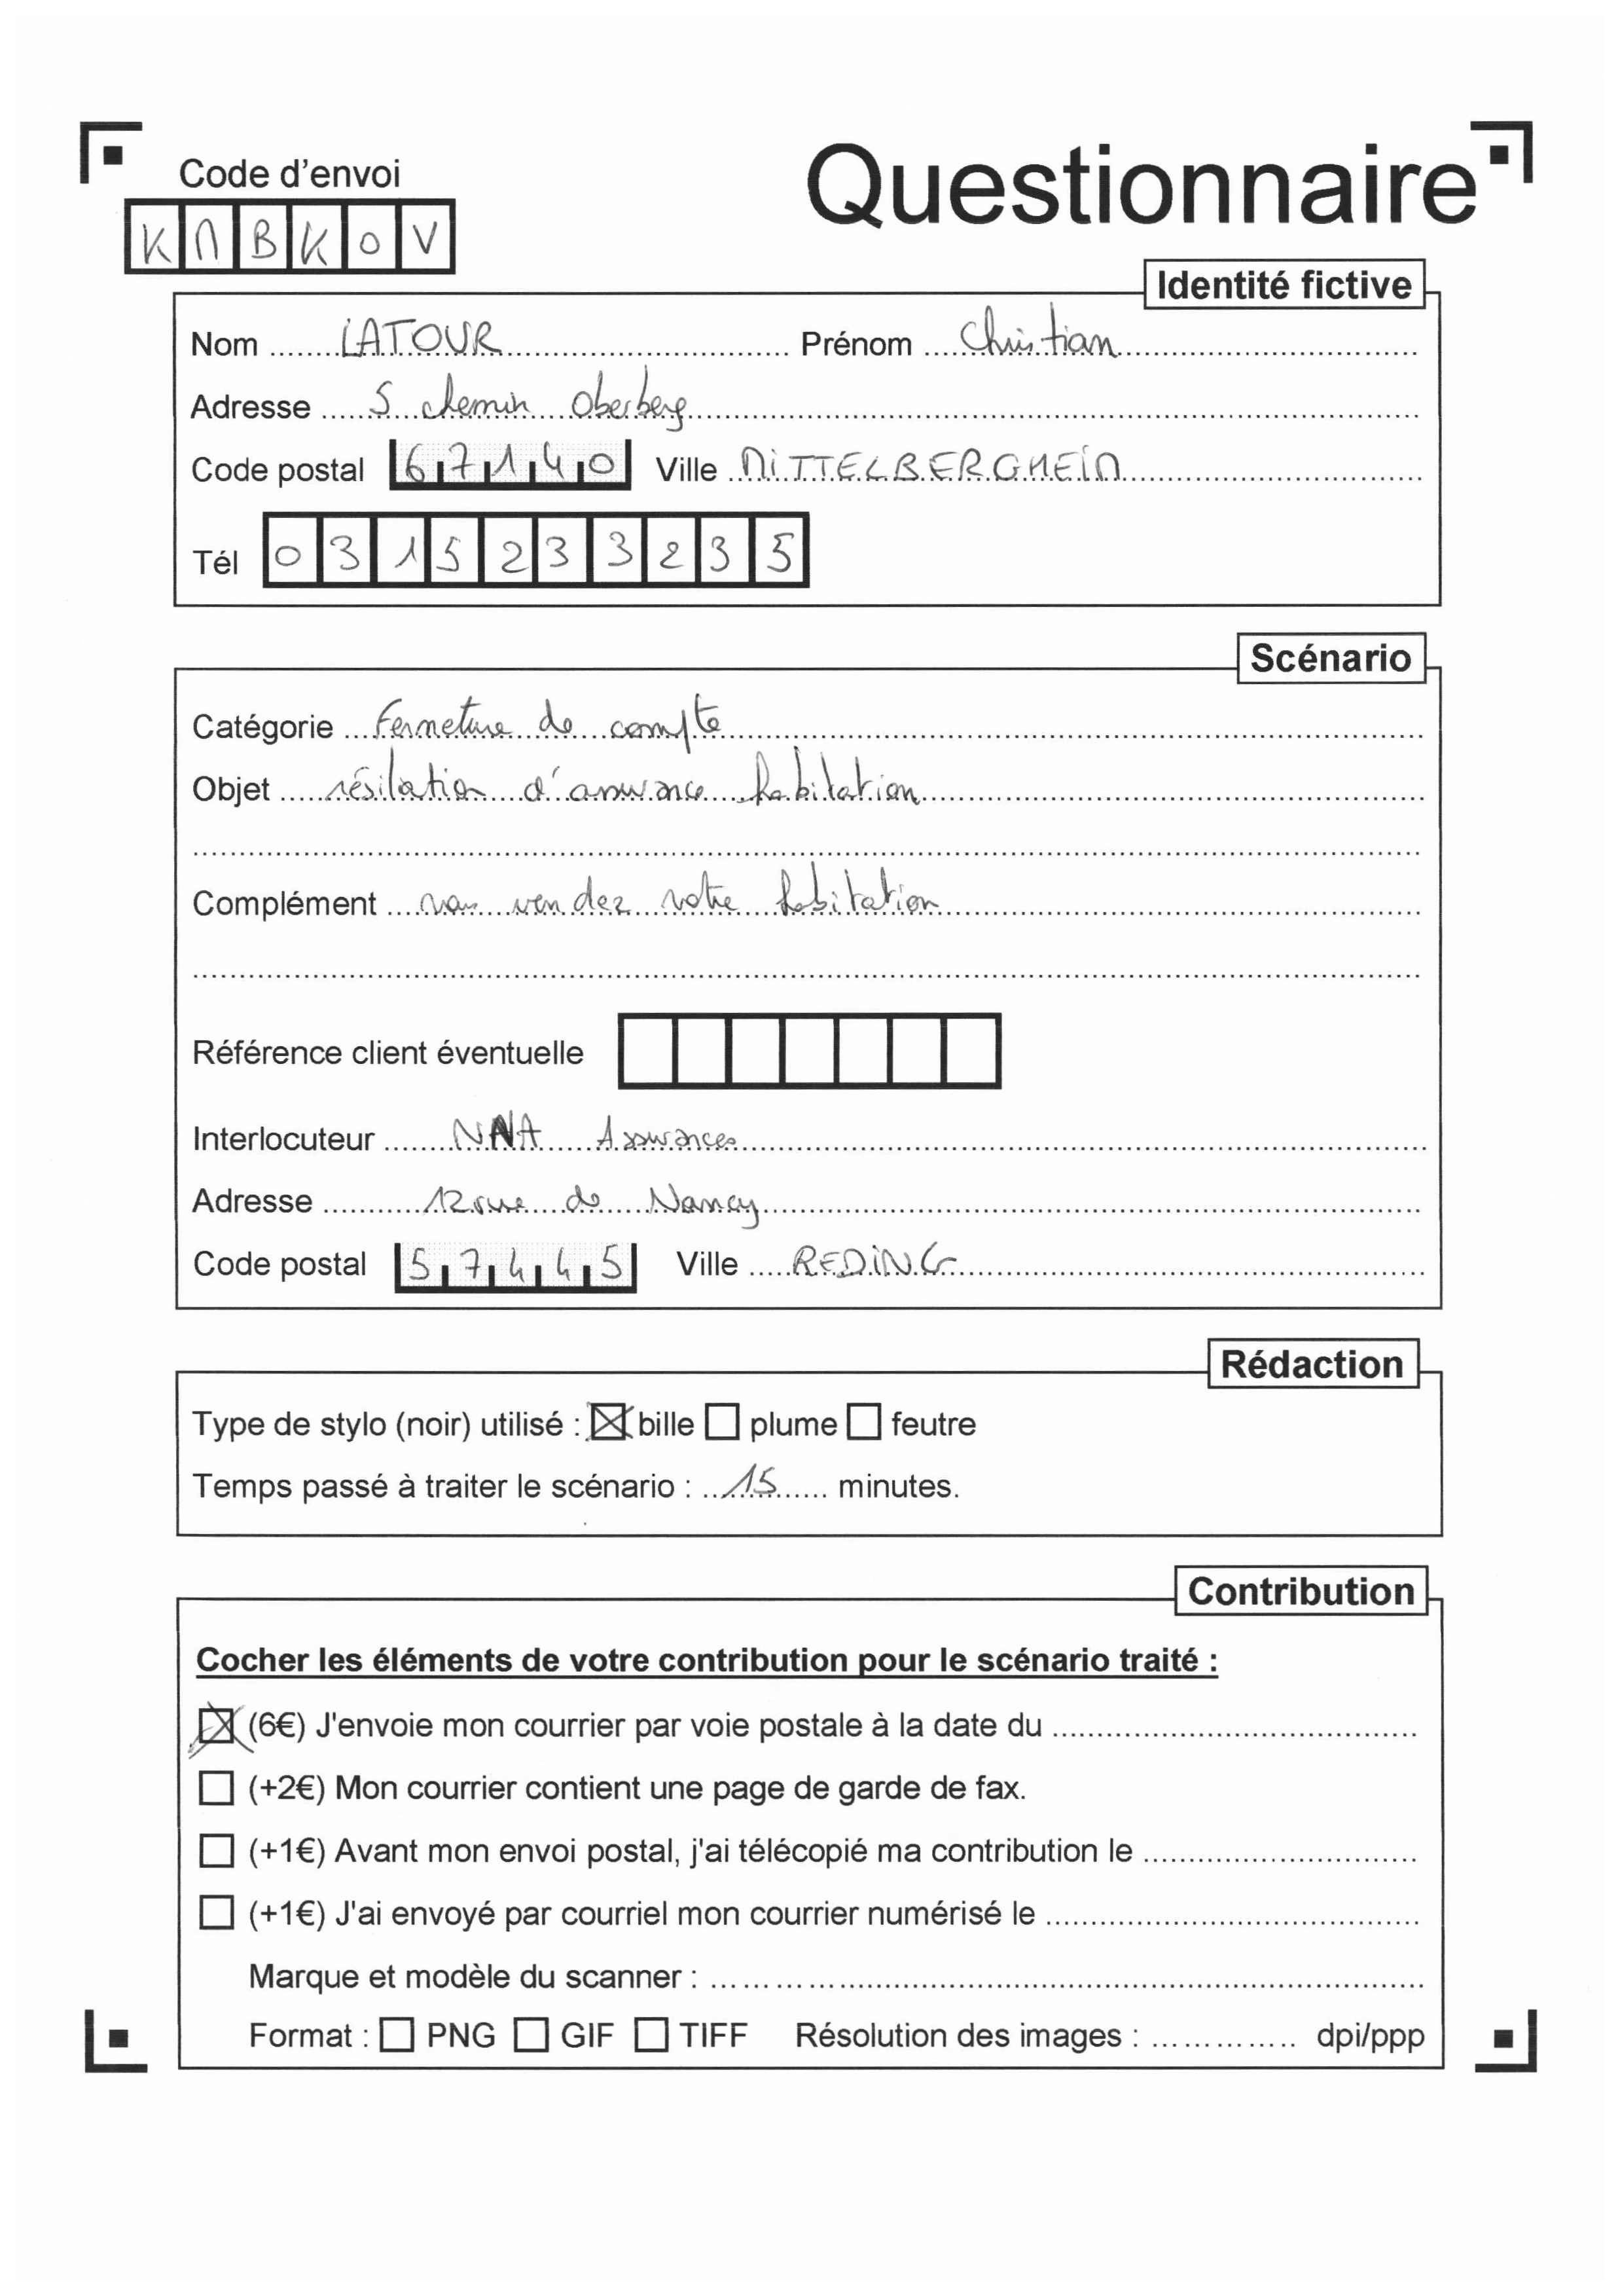 Questionnaire
Code d'envoi
KMBKOV
Identité fictive
Nom LATOUR Prénom Christian
Adresse 5 chemin Oberberg
Code postal 67140 Ville MITTELBERGHEIM
Tél 0315233235
Scénario
Catégorie Fermeture de compte
Objet résilation d'assurance habitation
Complément vous vendez votre habitation
Référence client éventuelle
Interlocuteur Assurances
Adresse 12 rue de Nancy
Code postal 57445 Ville REDING
Rédaction
Type de stylo (noir) utilisé : bille plume feutre
Temps passé à traiter le scénario : 15 minutes.
Contribution
Cocher les éléments de votre contribution pour le scénario traité :
(6€) J'envoie mon courrier par voie postale à la date du
(+2€) Mon courrier contient une page de garde de fax.
(+1€) Avant mon envoi postal, j'ai télécopié ma contribution le
(+1€) J'ai envoyé par courriel mon courrier numérisé le
Marque et modèle du scanner :
Format : PNG GIF TIFF Résolution des images : dpi/ppp